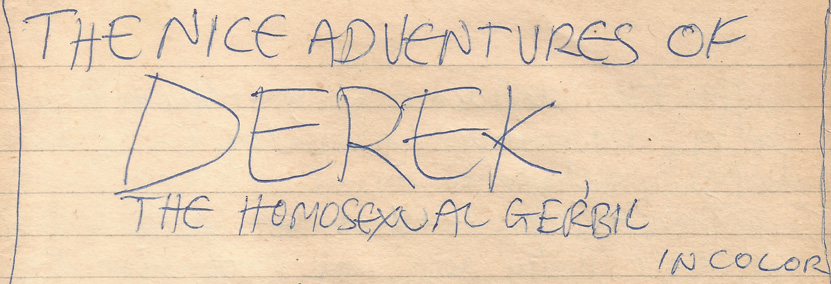 THE NICE ADVENTURES OF
DEREK,
THE HOMOSEXUAL GERBIL
IN COLOR